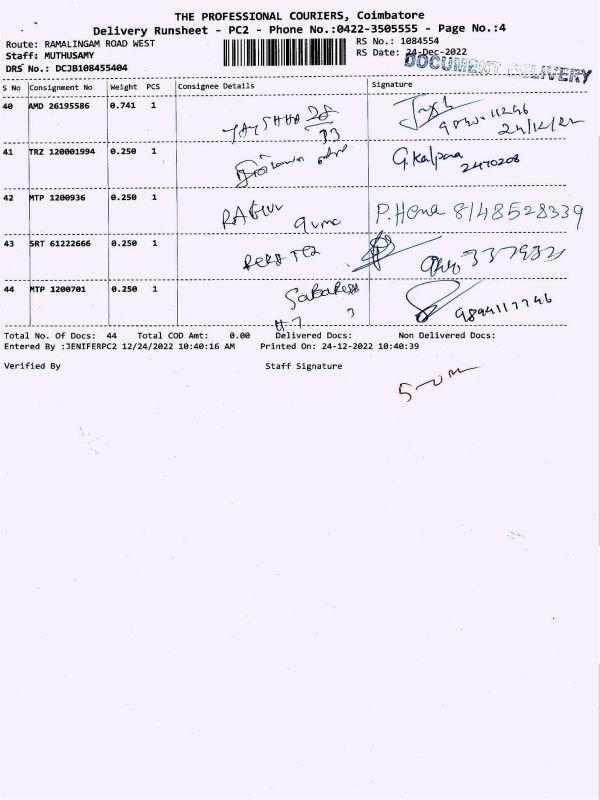 THE PROFESSIONAL COURIERS, Coimbatore
Delivery Runsheet - PC2 - Phone No.:0422-3505555 - Page No.:4
Route: RAMALINGAM ROAD WEST
RS No.: 1084554
Staff: MUTHUSAMY
RS Date: 24-Dec-2022
DOCUMENT DELIVERY
DRS No.: DCJB108455404
S No Consignment No Weight PCS Consignee Details Signature
40 AMD 26195586 0.741 1
41 TRZ 120001994 0.250 1 G.Kalpana
2470208
42 MTP 1200936 0.250 1 RAGUL P.Hena 8148528339
43 SRT 61222666 0.250 1
44 MTP 1200701 0.250 1 Sabares 9894117746
Total No. Of Docs: 44 Total COD Amt: 0.00 Delivered Docs: Non Delivered Docs:
Entered By :JENIFERPC2 12/24/2022 10:40:16 AM Printed On: 24-12-2022 10:40:39
Verified By Staff Signature